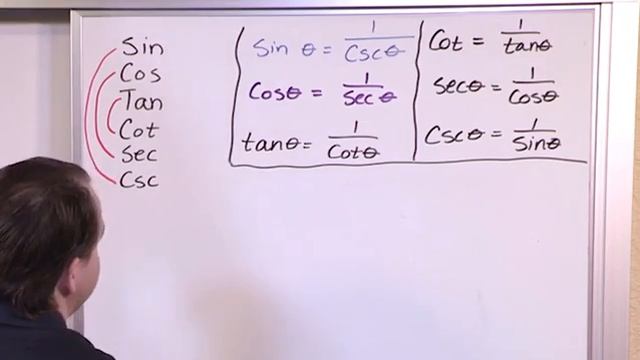 Sin
Cos
Tan
Cot
Sec
Csc
Sin θ = 1/Cscθ
Cosθ = 1/Secθ
tanθ = 1/Cotθ
Cot = 1/tanθ
secθ = 1/Cosθ
Cscθ = 1/Sinθ